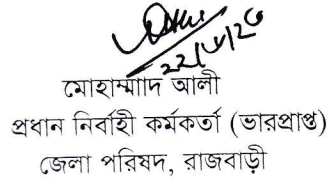 মোহাম্মাদ আলী
প্রধান নির্বাহী কর্মকর্তা (ভারপ্রাপ্ত)
জেলা পরিষদ, রাজবাড়ী